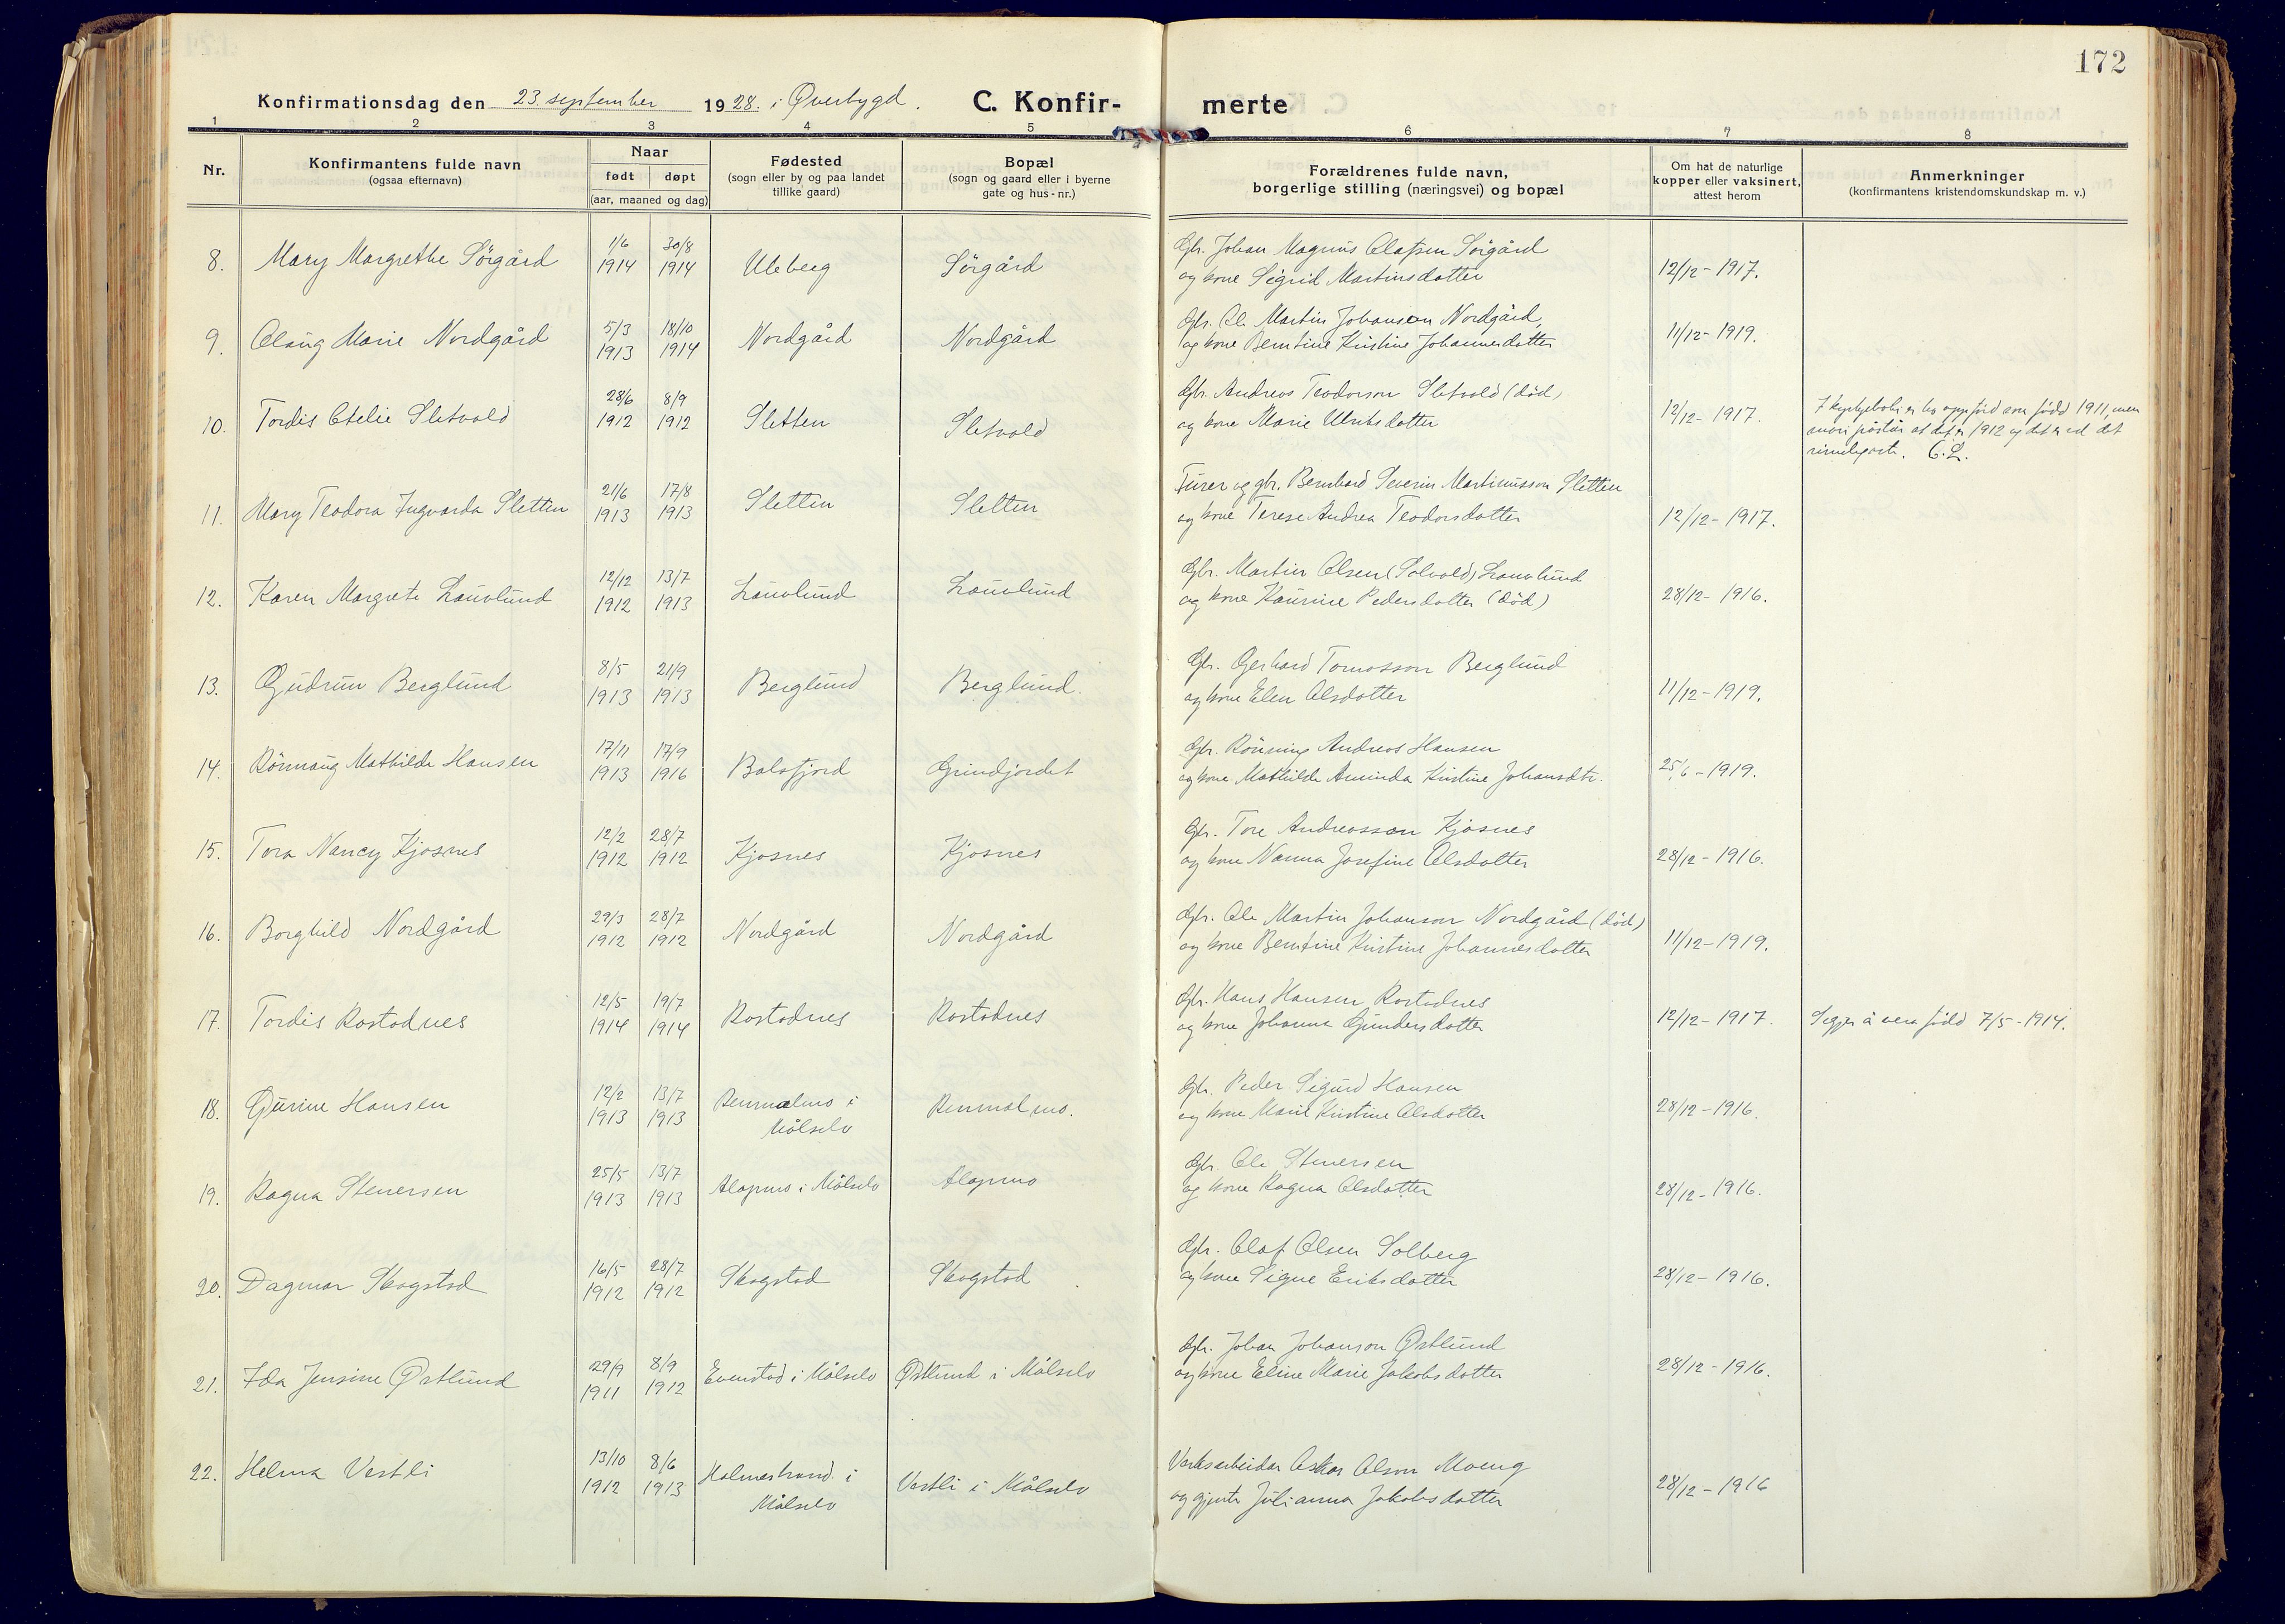 172
Konfirmationsdag den 23. september 1928. i Øverbygd. C. Konfir- merte
1 2 3 4 5 6 7 8
Nr.
Konfirmantens fulde navn
(ogsaa efternavn)
Naar
født døpt
(aar, maaned og dag)
Fødested
(sogn eller by og paa landet
tillike gaard)
Bopæl
(sogn og gaard eller i byerne
gate og hus-nr.)
Forældrenes fulde navn,
borgerlige stilling (næringsvei) og bopæl
Om hat de naturlige
kopper eller vaksinert,
attest herom
Anmerkninger
(konfirmantens kristendomskundskap m. v.)
8. Mary Margrethe Sörgård 1/6 1914 30/8 1914 Uleberg Sörgård
Gbr. Johan Magnus Olafsen Sörgård
og kone Sigrid Martinsdotter
12/12-1917.
9. Olaug Marie Nordgård 5/3 1913 18/10 1914 Nordgård Nordgård
Gbr. Ole Martin Johanson Nordgård,
og kone Berntine Kristine Johannesdotter
11/12-1919.
10. Tordis Otelie Sletvold 28/6 1912 8/9 1912 Sletten Sletvold
Gbr. Andreas Teodorson Sletvold (död)
og kone Marie Ulriksdotter
12/12-1917.
I kyrkjeboki er ho uppförd som född 1911, men
mori påstår at det er 1912 og det er vel det
rimelegaste. C.L.
11. Mary Teodora Ingvarda Sletten 21/6 1913 17/8 1913 Sletten Sletten
Furer og gbr. Bernhard Severin Martinusson Sletten
og kone Terese Andrea Teodorsdotter
12/12-1917.
12. Karen Margrete Lauvlund 12/12 1912 13/7 1913 Lauvlund Lauvlund
Gbr. Martin Olsen (Solvold) Lauvlund
og kone Kaurine Pedersdotter (död)
28/12-1916.
13. Gudrun Berglund 8/5 1913 21/9 1913 Berglund Berglund.
Gbr. Gerhard Tomasson Berglund
og kone Elen Olsdotter
11/12-1919.
14. Rönnaug Mathilde Hansen 17/11 1913 17/9 1916 Balsfjord Grindjordet
Gbr. Rönning Andreas Hansen
og kone Mathilde Aminda Kristine Johansdtr.
25/6-1919.
15. Tora Nancy Kjosnes 12/2 1912 28/7 1912 Kjosnes Kjosnes
Gbr. Tore Andreasson Kjosnes
og kone Nanna Josefine Olsdotter
28/12-1916.
16. Borghild Nordgård 29/3 1912 28/7 1912 Nordgård Nordgård
Gbr. Ole Martin Johanson Nordgård (död)
og kone Berntine Kristine Johannesdotter
11/12-1919.
17. Tordis Rostadnes 12/5 1914 19/7 1914 Rostadnes Rostadnes
Gbr. Hans Hansen Rostadnes
og kone Johanna Gundersdotter
12/12-1917.
Segjer å vera född 7/5-1914.
18. Gurine Hansen 12/2 1913 13/7 1913 Rennalmo i
Målselv
Rennalmo.
Gbr. Peder Sigurd Hansen
og kone Marie Kristine Olsdotter
28/12-1916.
19. Ragna Stenersen 25/5 1913 13/7 1913 Alapmo i Målselv Alapmo
Gbr. Ole Stenersen
og kone Ragna Olsdotter
28/12-1916.
20. Dagmar Skogstad 16/5 1912 28/7 1912 Skogstad Skogstad
Gbr. Olaf Olsen Solberg
og kone Signe Eriksdotter
28/12-1916.
21. Ida Jensine Østlund 29/9 1911 8/9 1912 Evenstad i Målselv Østlund i Målselv
Gbr. Johan Johanson Østlund
og kone Eline Marie Jakobsdotter
28/12-1916.
22. Helma Vestli 13/10 1912 8/6 1913 Holmestrand i
Målselv
Vestli i Målselv
Verksarbeidar Oskar Olson Moeng
og gjente Julianna Jakobsdotter
28/12-1916